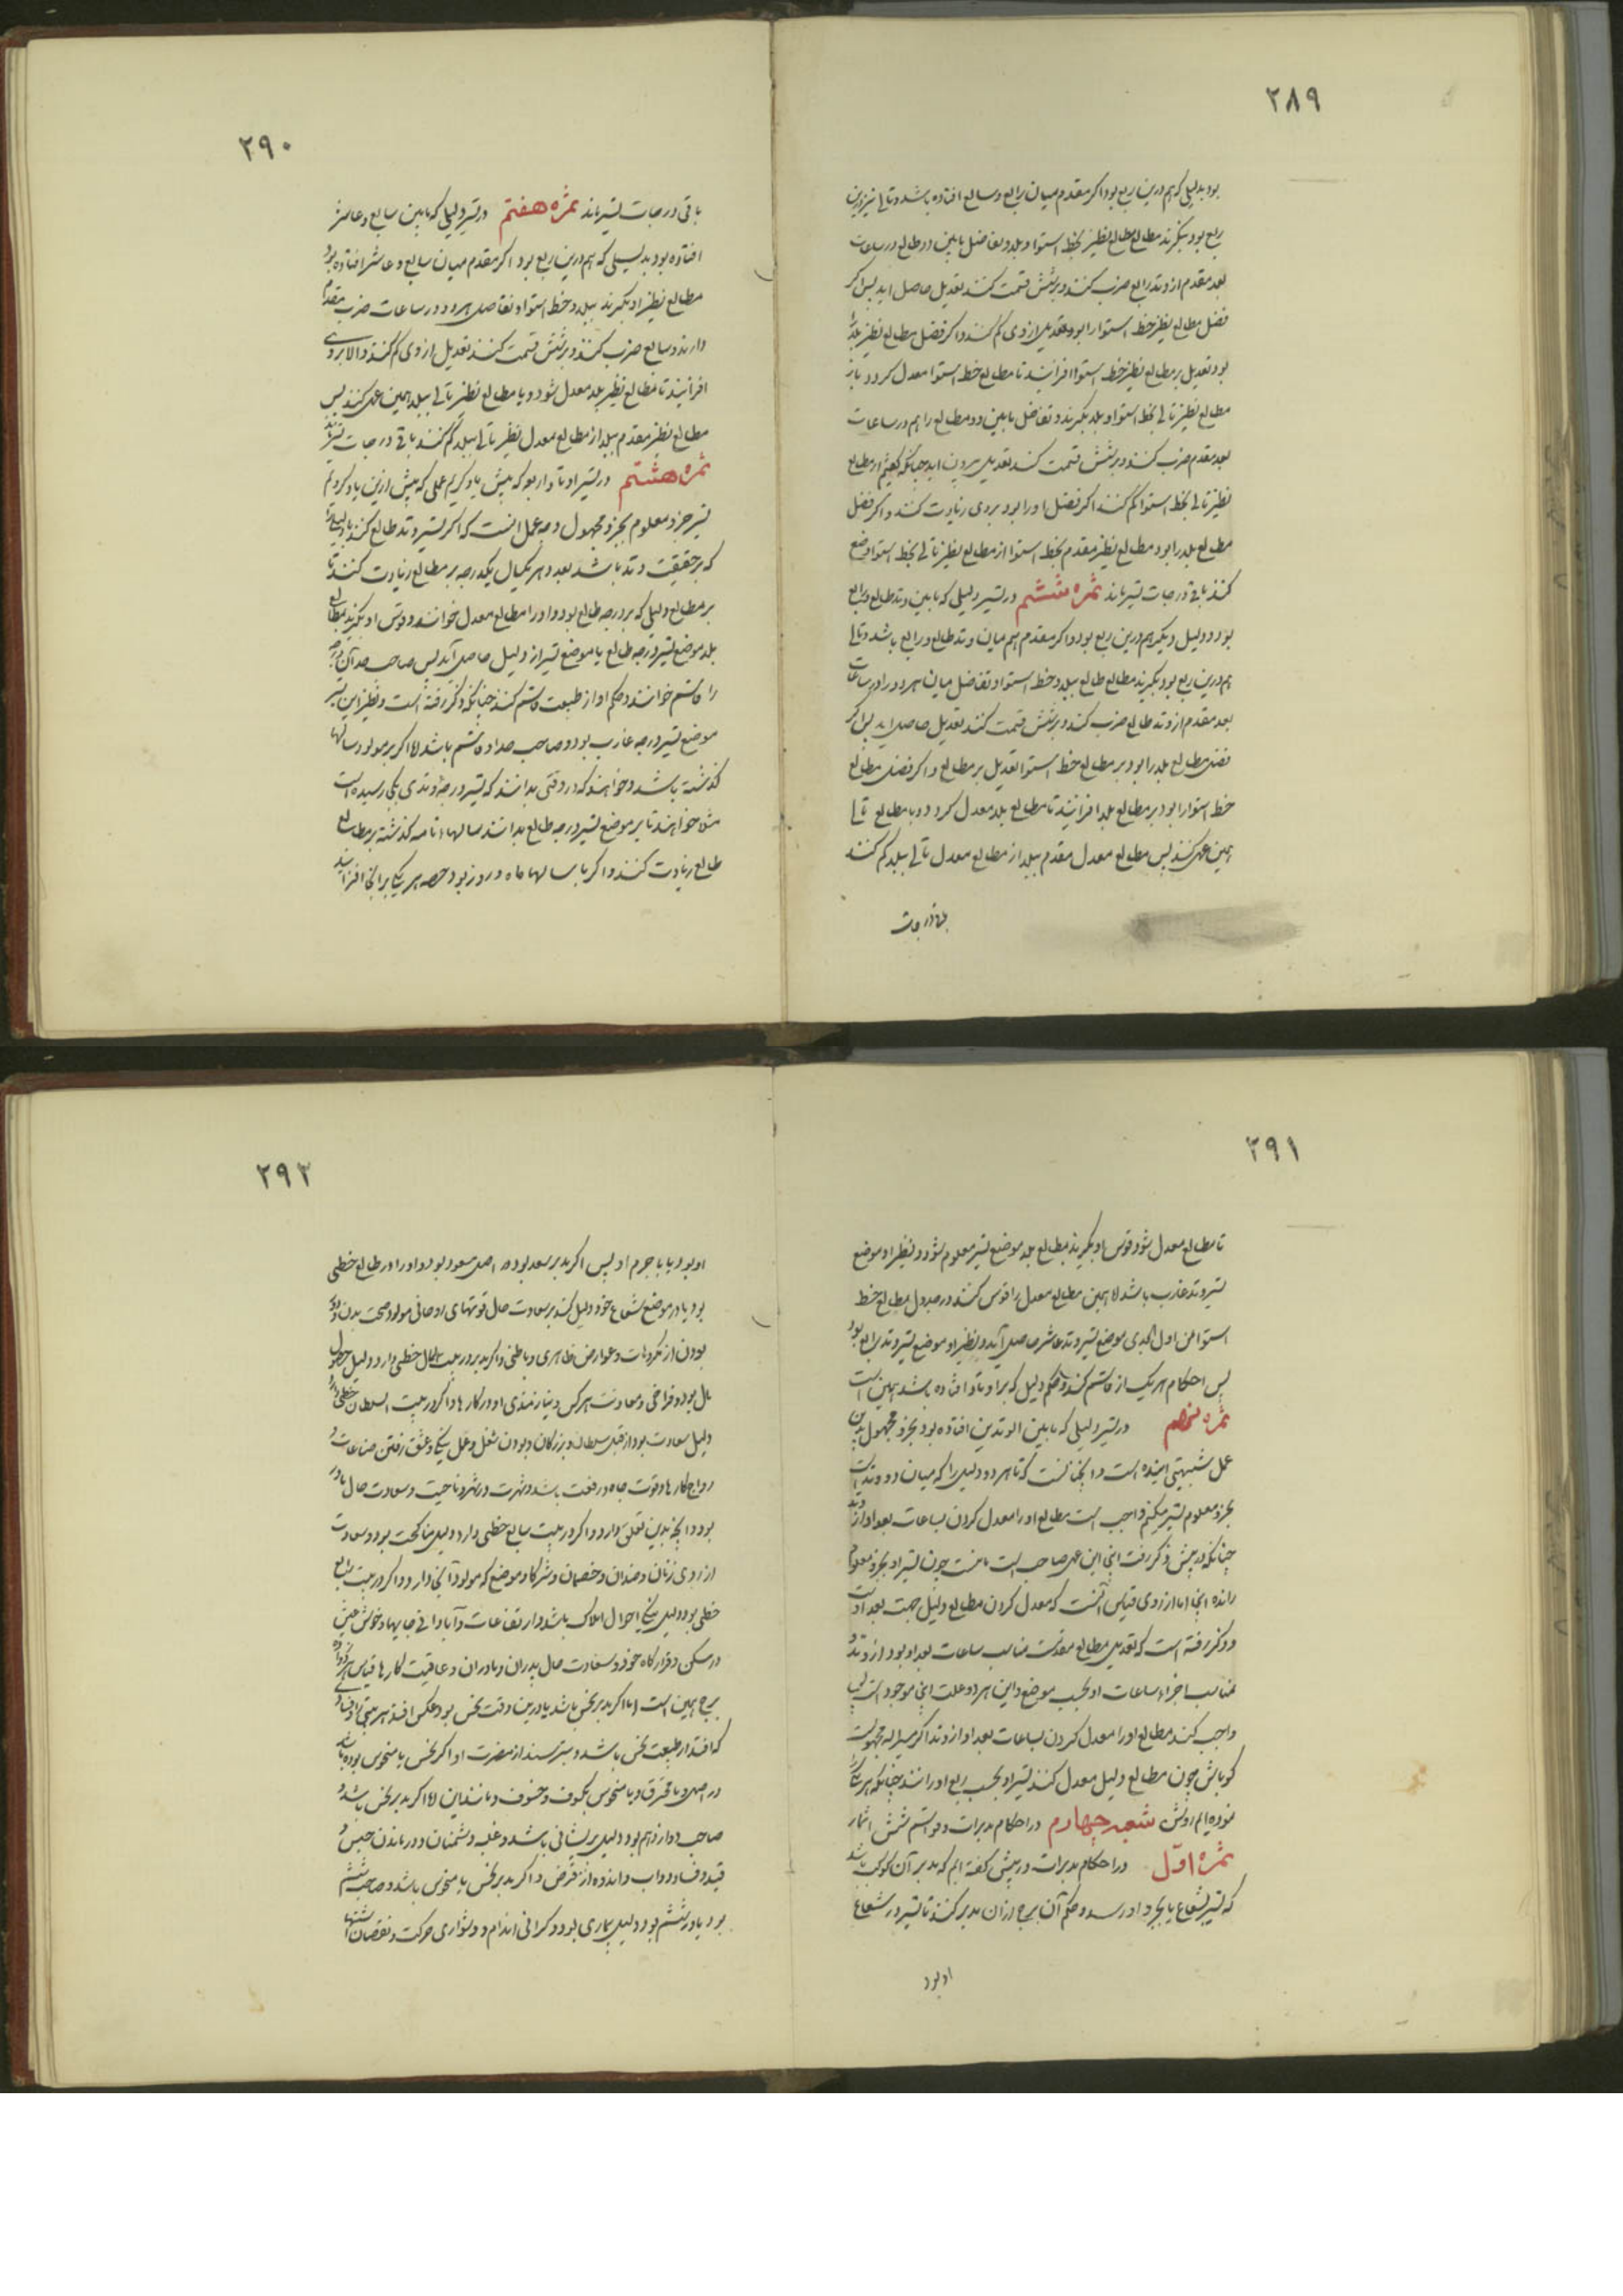 ۲۸۹
بود بدلیلی که هم درین ربع بود اکر مقدم میان رابع و سابع افتاده باشد و تالی نیز درین
ربع بود بگیرند مطالع نظیر بخط استوا و بلد و تفاضل مابین دو مطالع در ساعات
بعد مقدم از وتد رابع ضرب کنند و بر شش قسمت کنند تعدیل حاصل اید پس اکر
فضل مطالع نظیر خط استوا را بود تعدیل از وی کم کنند و اکر فضل مطالع نظیر بلد را
بود تعدیل بر مطالع نظیر خط استوا افزایند تا مطالع خط استوا معدل کردد و باز
مطالع نظیر تالی بخط استوا و بلد بکیرند و تفاضل مابین دو مطالع را هم در ساعات
بعد مقدم ضرب کنند و بر شش قسمت کنند تعدیل بیرون اید چنانکه کفتیم از مطالع
نظیر تالی بخط استوا کم کنند اکر فضل او را بود بروی زیادت کنند و اکر فضل
مطالع بلد را بود مطالع نظیر مقدم بخط استوا از مطالع نظیر تالی بخط استوا وضع
کنند باقی درجات تسیر ماند ثمره ششم در تسیر دلیلی که مابین وتد طالع و رابع
بود و دلیل دیکر هم درین ربع بود و اکر مقدم هم میان وتد طالع و رابع باشد و تالی
هم درین ربع بود بکیرند مطالع طالع ببلد و خط استوا و تفاضل میان هر دو را در ساعات
بعد مقدم از وتد طالع ضرب کنند و بر شش قسمت کنند تعدیل حاصل اید پس اکر
فضل مطالع بلد را بود بر مطالع خط استوا تعدیل بر مطالع و اکر فضل مطالع
خط استوا را بود بر مطالع بلد افزایند تا مطالع بلد معدل کردد و با مطالع تالی
همین عمل کنند پس مطالع معدل مقدم ببلد از مطالع معدل تالی ببلد کم کنند
باقی درجات
۲۹۰
باقی درجات تسیر ماند ثمره هفتم در تسیر دلیلی که مابین سابع و عاشر
افتاده بود بدلیلی که هم درین ربع بود اکر مقدم میان سابع و عاشر افتاده بود
مطالع نظیر او بکیرند ببلد و خط استوا و تفاضل هر دو در ساعات ضرب مقدم
دارند و سابع ضرب کنند و بر شش قسمت کنند تعدیل از وی کم کنند و الا بروی
افزایند تا مطالع نظیر بلد معدل شود و با مطالع نظیر تالی ببلد همین عمل کنند پس
مطالع نظیر مقدم ببلد از مطالع معدل نظیر تالی ببلد کم کنند باقی درجات تسیر ماند
ثمره هشتم در تسیر اوتاد اربعه که پیش یاد کردیم عملی که پیش ازین یاد کردم
تسیر جزو معلوم بجزو مجهول وجه عمل انست که اکر تسیر وتد طالع کنند یا دلیلی را
که بر حقیقت وتد باشد بعدد هر یکسال یکدرجه بر مطالع زیادت کنند تا
بر مطالع دلیلی که بر درجه طالع بود و او را مطالع معدل خوانند و قوس او بکیرند بمطالع
بلد موضع تسیر درجه طالع یا موضع تسیر از دلیل حاصل آید پس صاحب حد آن درجه
را قاسم خوانند و حکم او از طبیعت قاسم کنند چنانکه ذکر رفته است و نظیر این تسیر
موضع تسیر درجه غارب بود و صاحب حد او قاسم باشد لا اکر بر مولود سالها
کذشته باشد و خواهند که در وقتی بدانند که تسیر درجه وتدی بکجا رسیده است
مثلا خواهند تا بر موضع تسیر درجه طالع بدانند سالهاء تامه کذشته بر مطالع
طالع زیادت کنند و اکر با سالها ماه و روز بود حصه هر یکی بر انجا افزایند
۲۹۱
تا مطالع معدل شود و قوس او بکیرند بمطالع بلد موضع تسیر معلوم شود و نظیر او موضع
تسیر وتد غارب باشد لا همین مطالع معدل را قوس کنند در جدول مطالع خط
استوا من اول الجدی موضع تسیر وتد عاشر حاصل آید و نظیر او موضع تسیر وتد رابع بود
پس احکام هر یک از قاسم کنند و حکم دلیل که بر اوتاد افتاده باشد همین است
ثمره نهم در تسیر دلیلی که مابین الوتدین افتاده بود بجزو مجهول بدین
عمل شبیهتی اینده است و انچنانست که تا هر دو دلیل را که میان دو وتد است
بجزو معلوم تسیر میکنیم واجب است مطالع او را معدل کردن بساعات بعد او از وتد
چنانکه در پیش ذکر رفت اینجا این عمل صاحب است بایست چون تسیر او بجزو معلوم
رانده اینجا اما از روی قیاس آنست که معدل کردن مطالع دلیل جهت بعد اوست
و ذکر رفته است که تعدیل مطالع مقدمست مناسب ساعات بعد او بود از وتد و
مناسب اجزاء ساعات او بحسب موضع و این هر دو علت اینجا موجود است پس
واجب کند مطالع او را معدل کردن بساعات بعد او از وتد اکر مسیر الیه مجهولست
کو باش چون مطالع دلیل معدل کنند تسیر او بحسب ربع او رانند چنانکه هر یک را
نموده ایم روش شعبه چهارم در احکام مدبرات و قواسم شش اثمار
ثمره اول در احکام مدبرات در پیش کفته ایم که مدبر آن کوکب باشد
که تسیر بشعاع یا بجرم او رسد و حکم آن برج از آن مدبر کنند تا تسیر در شعاع
او بود
۲۹۲
او بود یا با جرم او پس اکر مدبر سعد بود در اصل مسعود بود و او را در طالع خطی
بود یا در موضع شعاع خود دلیل کند بر سعادت حال قوتهای روحانی مولود و صحت بدن و دور
بودن از مکروهات و عوارض ظاهری و باطنی و اکر مدبر در بیت المال خطی دارد دلیل حصول
مال بود و فراخی و معاونت هر کس و نیازمندی او در کارها و اکر در بیت السلطان خطی دارد
دلیل سعادت بود از قبل سلطان و بزرکان و بودن شغل و عمل نیکو و عشق رفتن صناعات و
رواج کارها و قوت جاه و رفعت باشد و شهرت در شهر و ناحیت و سعادت حال مادر
بود و انچه بدین تعلق دارد و اکر در بیت سابع خطی دارد دلیل مناکحت بود و سعادت
از روی زنان و ضدان و خصمان و شرکا و موضع که مولود آنجا دارد و اکر در بیت رابع
خطی بود دلیل نیکی احوال املاک باشد و ارتفاعات و آبادانی جایها و خوش عیش
در مسکن و قرارکاه خود و سعادت حال پدران و مادران و عاقبت کارها قیاس هر دو
برج همین است اما اکر مدبر نحس باشد یا درین وقت نحس بود بعکس افتد هر بیتی را و فساد
که افتد از طبیعت نحس باشد و بترسند از مضرت او اکر نحس یا منحوس بوده باشد
در اصل و یا محترق و یا منحوس بکسوف و خسوف و مانند این لا اکر مدبر نحس باشد و
صاحب دوازدهم بود دلیل پریشانی باشد و غلبه دشمنان و درماندن حبس و
قید و فساد دواب و اندوه از قرض و اکر مدبر نحس یا منحوس باشد و صاحب ششم
بود یا در ششم بود دلیل بیماری بود و کرانی اندام و دشواری حرکت و نقصان اشتها